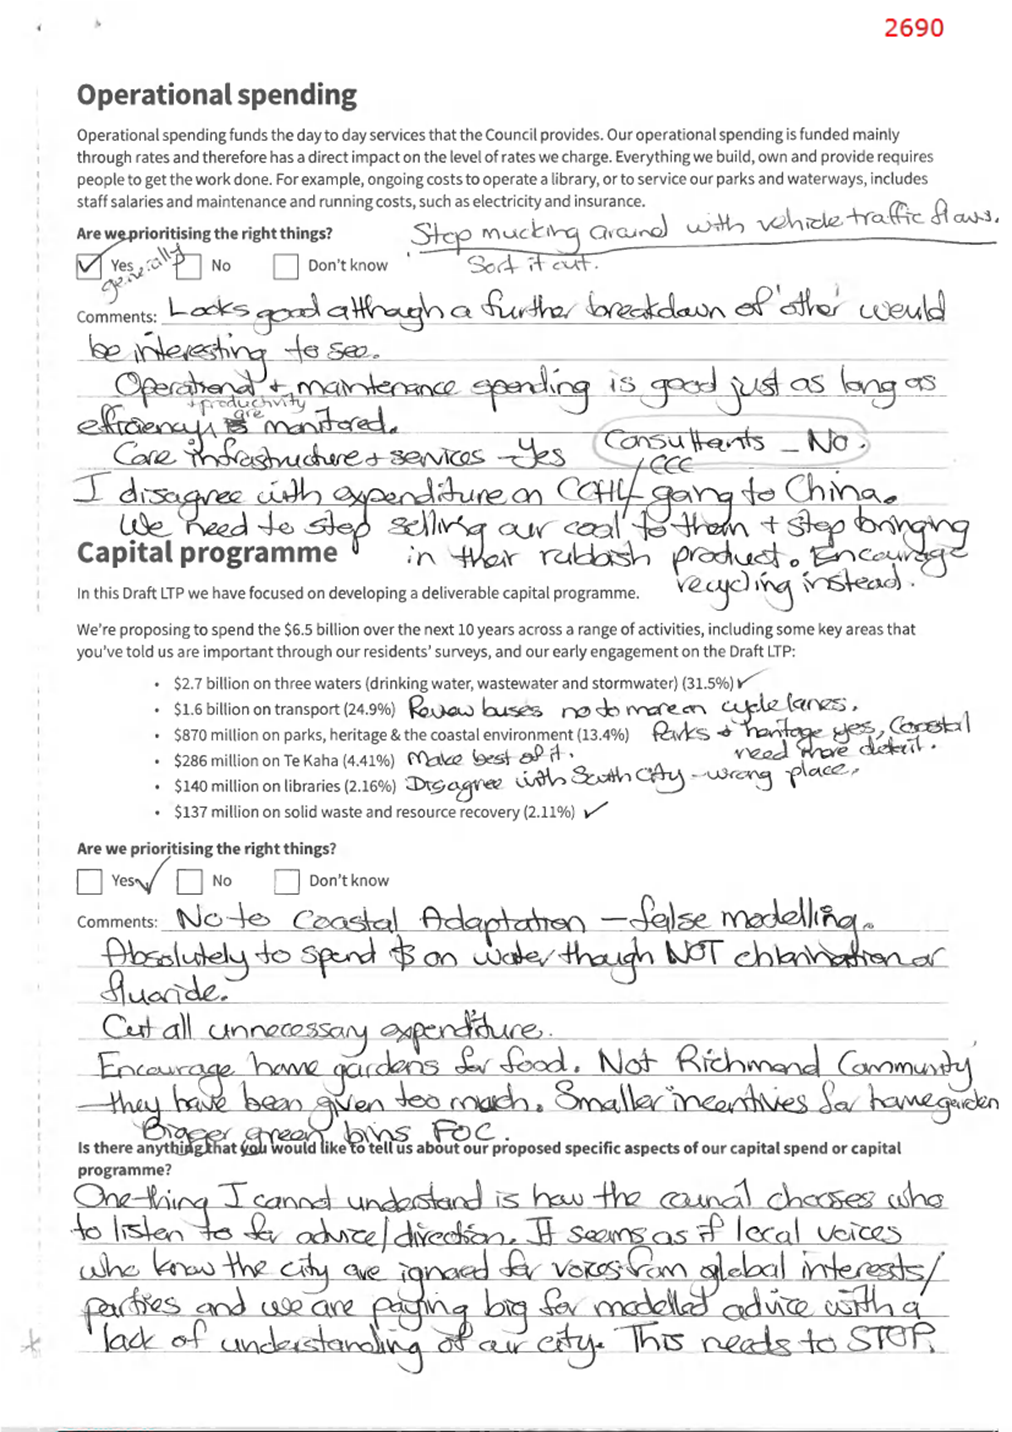 2690
Operational spending
Operational spending funds the day to day services that the Council provides. Our operational spending is funded mainly
through rates and therefore has a direct impact on the level of rates we charge. Everything we build, own and provide requires
people to get the work done. For example, ongoing costs to operate a library, or to service our parks and waterways, includes
staff salaries and maintenance and running costs, such as electricity and insurance.
Are we prioritising the right things?
Stop mucking around with vehicle traffic flows.
Sort it out.
Yes generally No Don't know
Comments: Looks good although a further breakdown of 'other' would
be interesting to see.
Operational + maintenance spending is good just as long as
+ productivity are
efficiency is monitored.
Core infrastructure + services - Yes Consultants - No.
I disagree with expenditure on CCHL/CCC going to China.
We need to stop selling our coal to them + stop bringing
in their rubbish product. Encourage
recycling instead.
Capital programme
In this Draft LTP we have focused on developing a deliverable capital programme.
We're proposing to spend the $6.5 billion over the next 10 years across a range of activities, including some key areas that
you've told us are important through our residents' surveys, and our early engagement on the Draft LTP:
• $2.7 billion on three waters (drinking water, wastewater and stormwater) (31.5%) ✓
• $1.6 billion on transport (24.9%) Review buses no to more on cycle lanes.
• $870 million on parks, heritage & the coastal environment (13.4%) Parks + heritage yes, Coastal
need more detail.
• $286 million on Te Kaha (4.41%) Make best of it.
• $140 million on libraries (2.16%) Disagree with South City - wrong place.
• $137 million on solid waste and resource recovery (2.11%) ✓
Are we prioritising the right things?
Yes ✓ No Don't know
Comments: No to Coastal Adaptation - false modelling.
Absolutely to spend $ on water though NOT chlorination or
fluoride.
Cut all unnecessary expenditure.
Encourage home gardens for food. Not Richmond Community
- they have been given too much. Smaller incentives for home garden
Bigger green bins FOC.
Is there anything that you would like to tell us about our proposed specific aspects of our capital spend or capital
programme?
One thing I cannot understand is how the council chooses who
to listen to for advice/direction. It seems as if local voices
who know the city are ignored for voices from global interests/
parties and we are paying big for modelled advice with a
lack of understanding of our city. This needs to STOP.